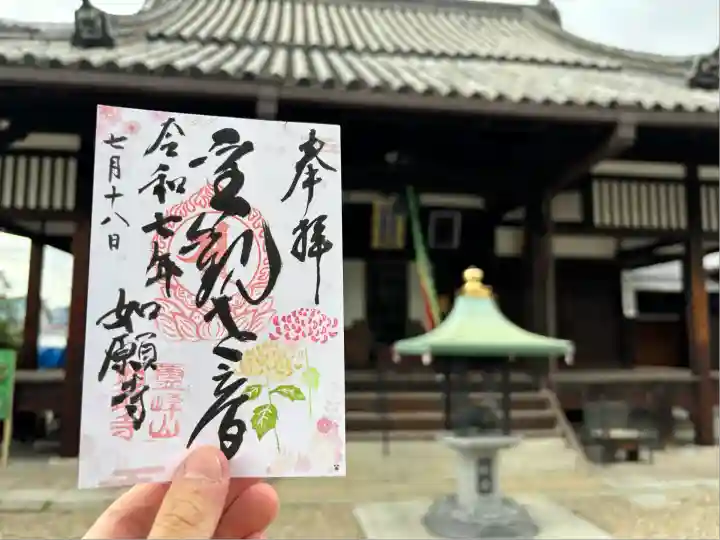 奉拝
聖観世音
令和七年
七月十八日
如願寺
霊峰山